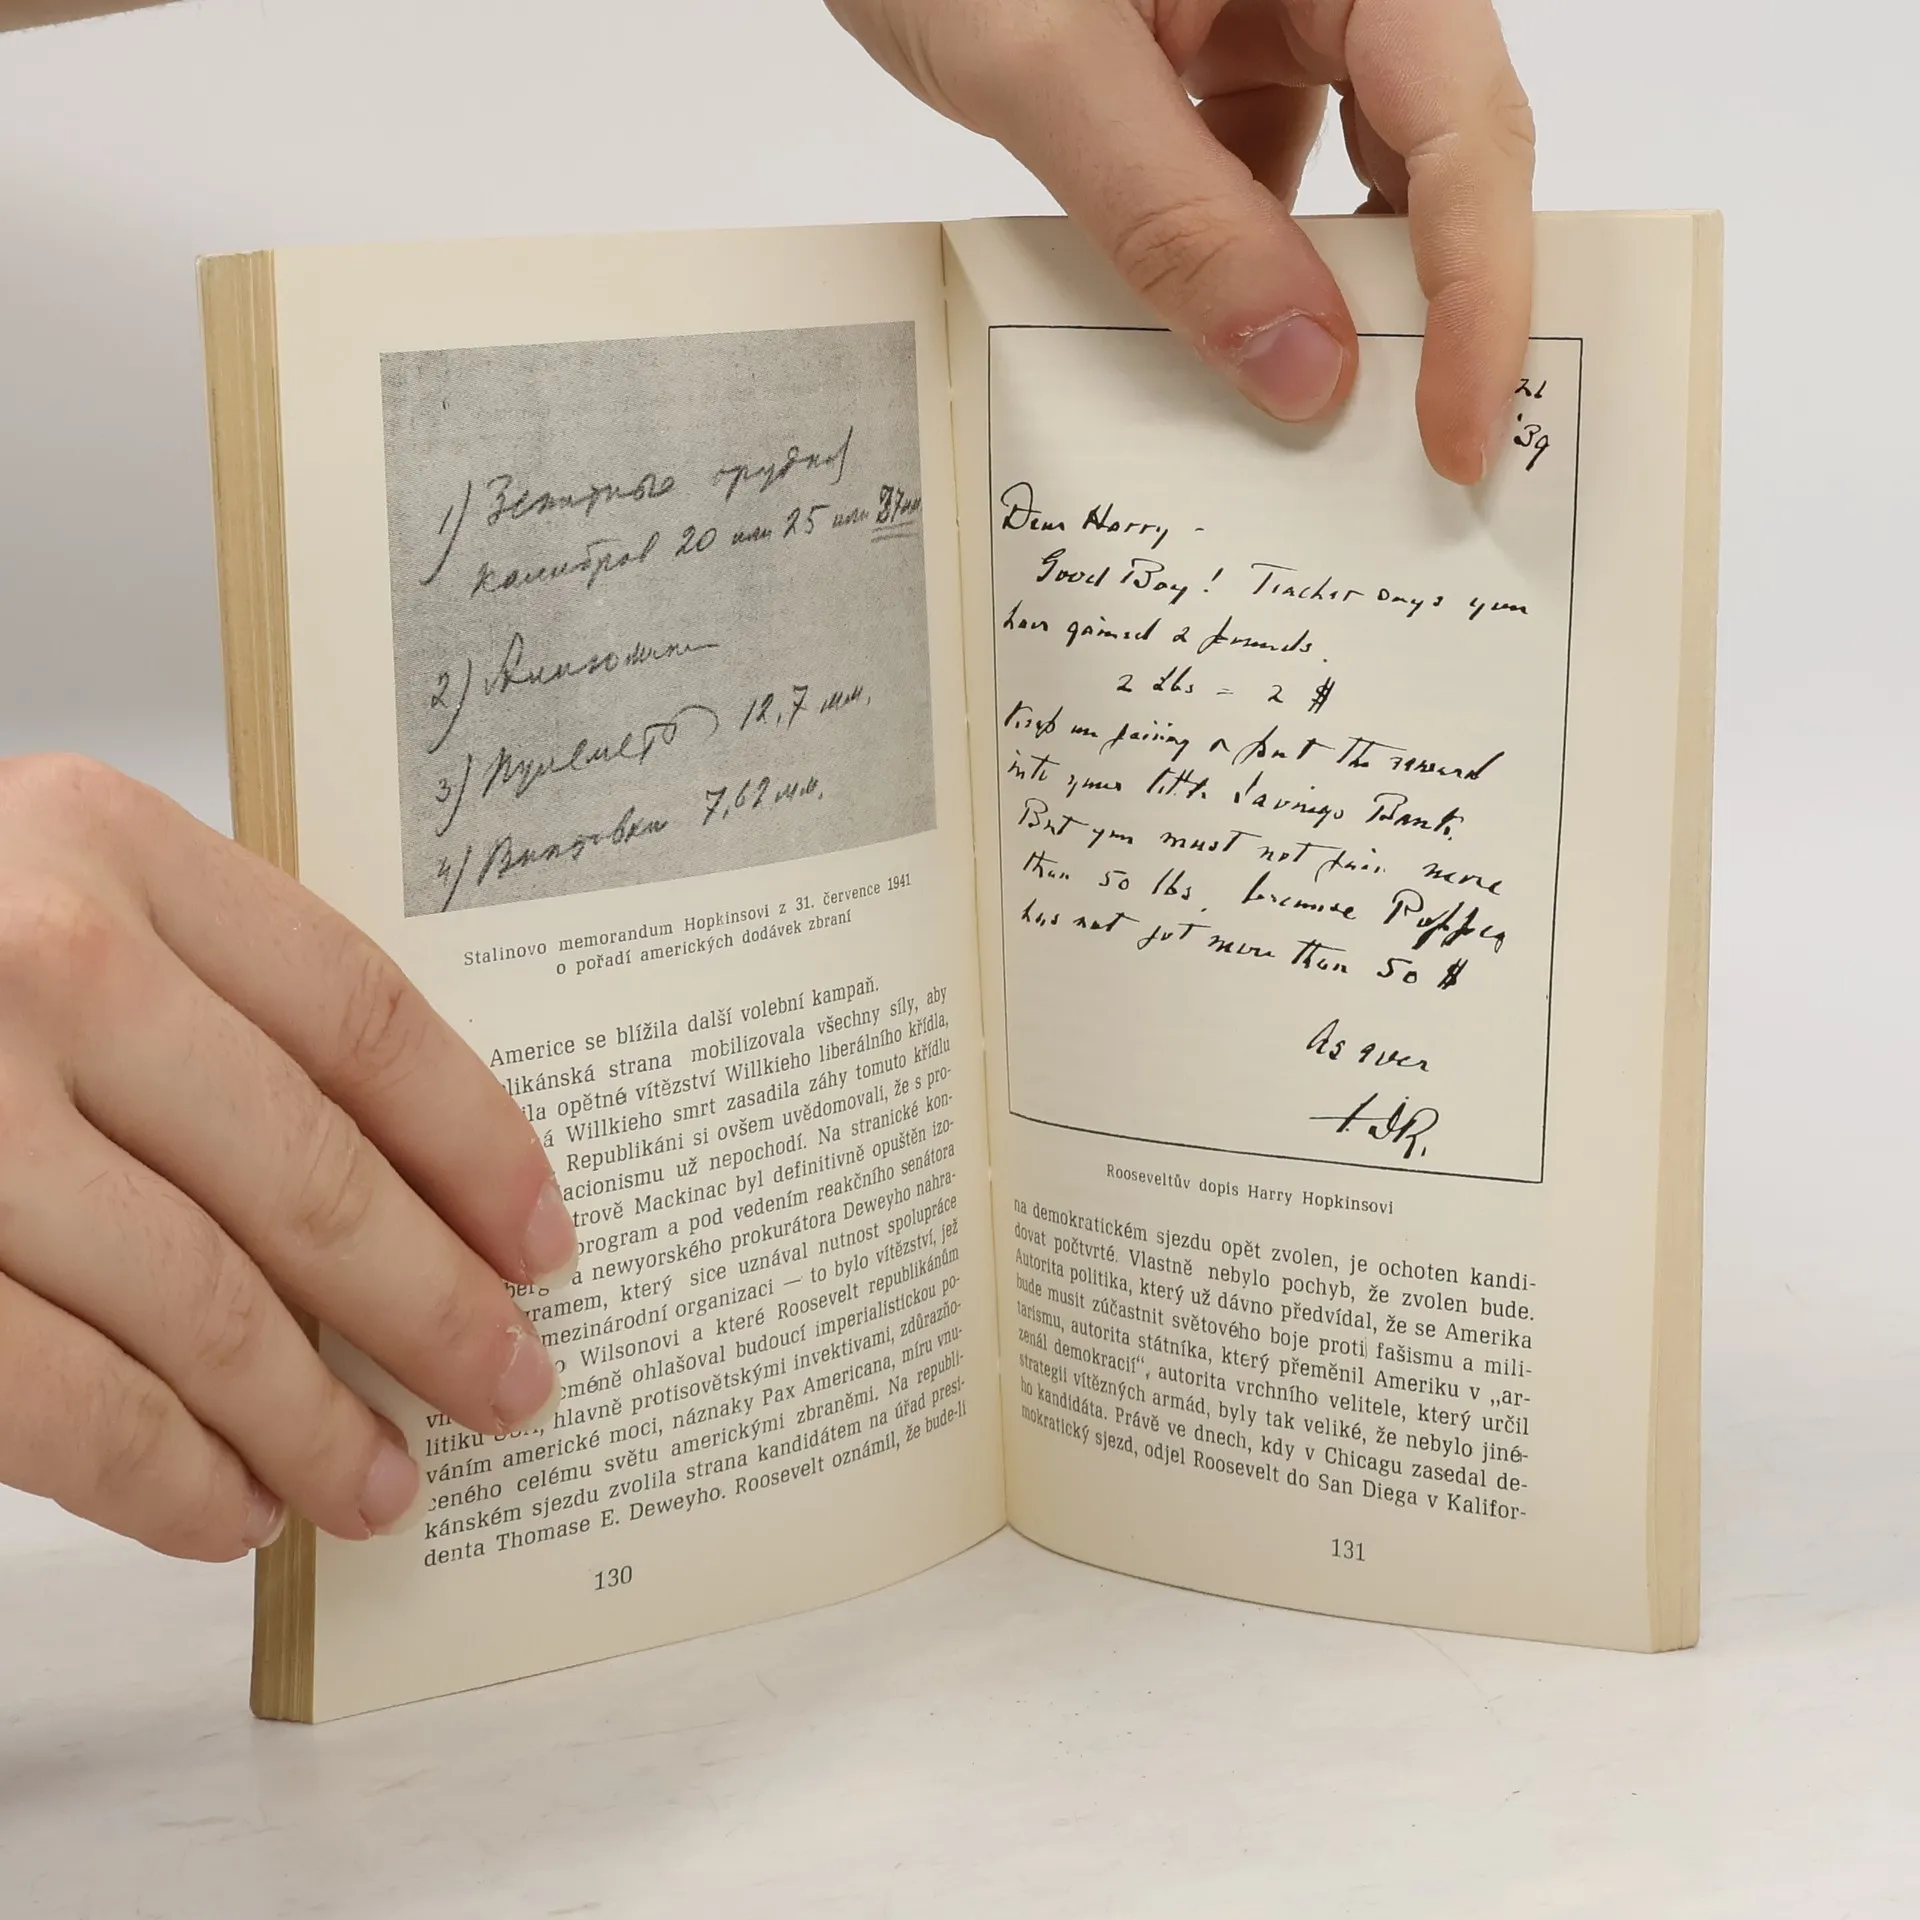 1) Зенитные орудия
калибров 20 или 25 или 37 мм.
2) Алюминий
3) Пулемет 12,7 мм.
4) Винтовки 7,62 мм.
Stalinovo memorandum Hopkinsovi z 31. července 1941
o pořadí amerických dodávek zbraní
Americe se blížila další volební kampaň.
likánská strana mobilizovala všechny síly, aby
ila opětné vítězství Willkieho liberálního křídla,
á Willkieho smrt zasadila záhy tomuto křídlu
. Republikáni si ovšem uvědomovali, že s pro-
acionismu už nepochodí. Na stranické kon-
trově Mackinac byl definitivně opuštěn izo-
program a pod vedením reakčního senátora
berg a newyorského prokurátora Deweyho nahra-
gramem, který sice uznával nutnost spolupráce
mezinárodní organizaci — to bylo vítězství, jež
o Wilsonovi a které Roosevelt republikánům
cméně ohlašoval budoucí imperialistickou po-
litiku hlavně protisovětskými invektivami, zdůrazňo-
váním americké moci, náznaky Pax Americana, míru vnu-
ceného celému světu americkými zbraněmi. Na republi-
kánském sjezdu zvolila strana kandidátem na úřad presi-
denta Thomase E. Deweyho. Roosevelt oznámil, že bude-li
130
21
'39
Dear Harry -
Good Boy! Teacher says you
have gained 2 pounds.
2 Lbs = 2 $
Keep on gaining & put the reward
into your little Savings Bank.
But you must not gain more
than 50 lbs. because Poppa
has not got more than 50 $
As ever
F.D.R.
Rooseveltův dopis Harry Hopkinsovi
na demokratickém sjezdu opět zvolen, je ochoten kandi-
dovat počtvrté. Vlastně nebylo pochyb, že zvolen bude.
Autorita politika, který už dávno předvídal, že se Amerika
bude musit zúčastnit světového boje proti fašismu a mili-
tarismu, autorita státníka, který přeměnil Ameriku v „ar-
zenál demokracií“, autorita vrchního velitele, který určil
strategii vítězných armád, byly tak veliké, že nebylo jiné-
ho kandidáta. Právě ve dnech, kdy v Chicagu zasedal de-
mokratický sjezd, odjel Roosevelt do San Diega v Kalifor-
131